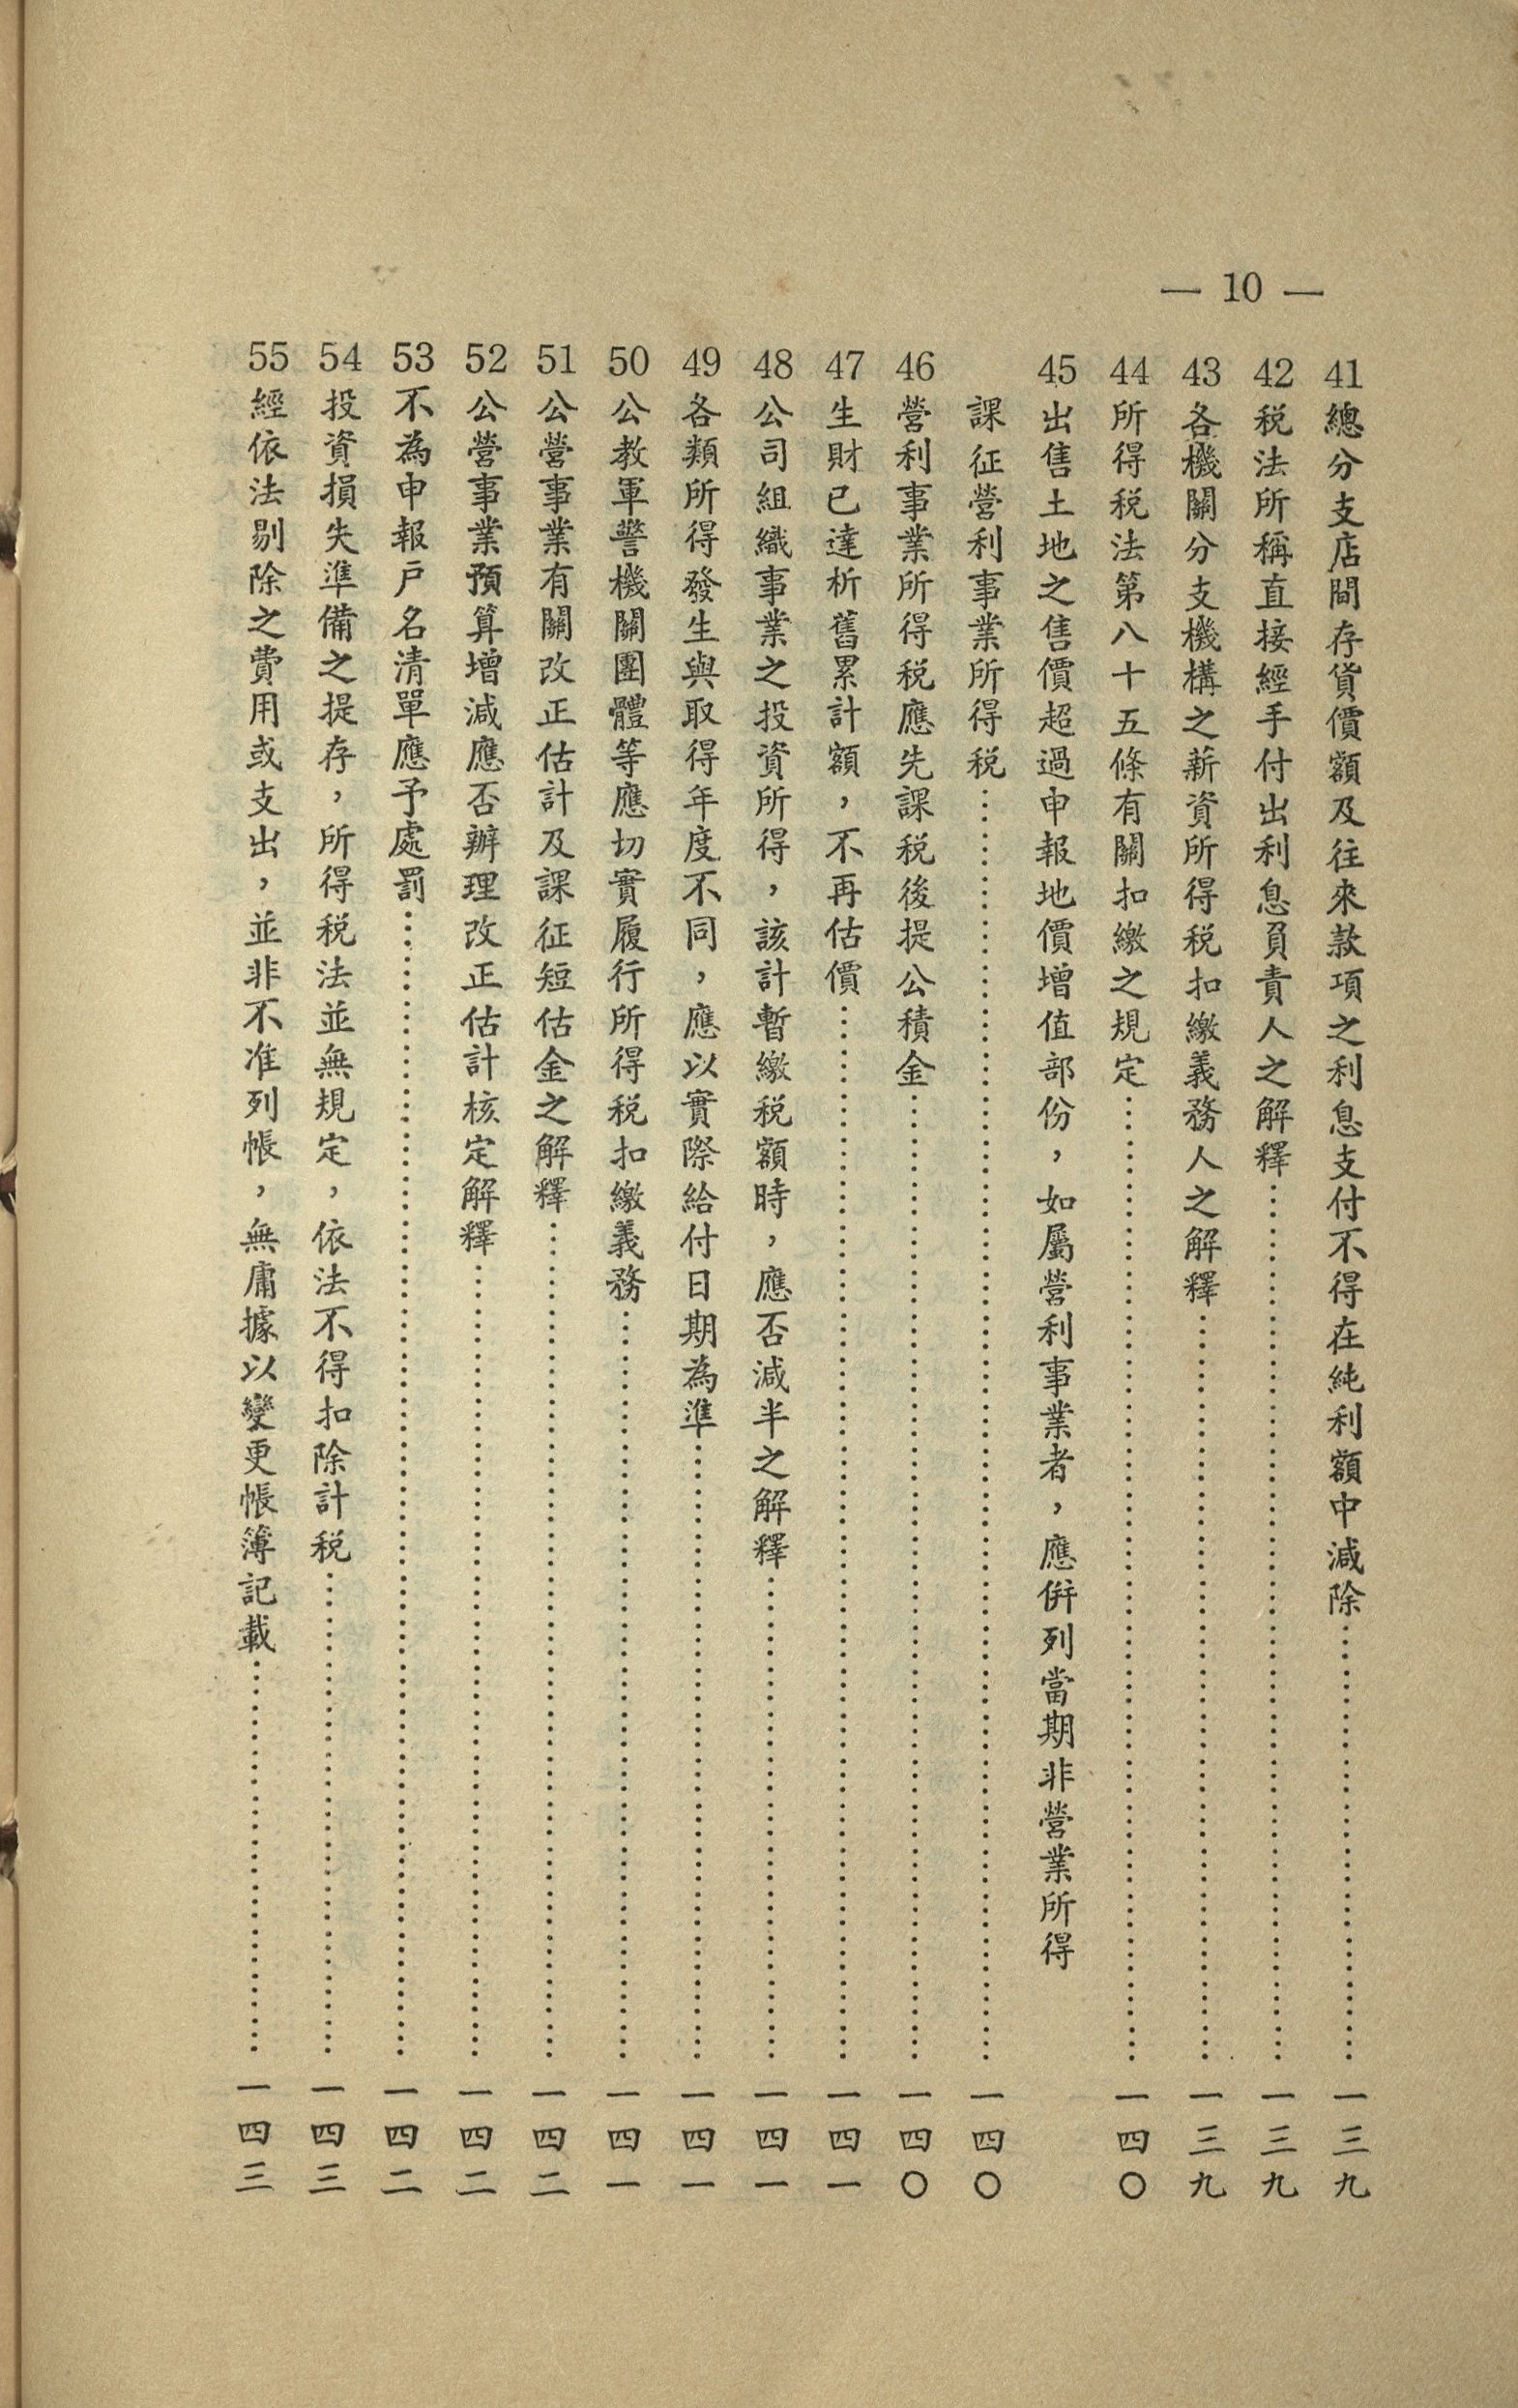 — 10 —
41總分支店間存貨價額及往來款項之利息支付不得在純利額中減除……一三九
42税法所稱直接經手付出利息負責人之解釋……一三九
43各機關分支機構之薪資所得税扣繳義務人之解釋……一三九
44所得税法第八十五條有關扣繳之規定……一四〇
45出售土地之售價超過申報地價增值部份，如屬營利事業者，應併列當期非營業所得
課征營利事業所得税……一四〇
46營利事業所得税應先課税後提公積金……一四〇
47生財已達析舊累計額，不再估價……一四一
48公司組織事業之投資所得，該計暫繳税額時，應否減半之解釋……一四一
49各類所得發生與取得年度不同，應以實際給付日期為準……一四一
50公教軍警機關團體等應切實履行所得税扣繳義務……一四一
51公營事業有關改正估計及課征短估金之解釋……一四二
52公營事業預算增減應否辦理改正估計核定解釋……一四二
53不為申報戶名清單應予處罰……一四二
54投資損失準備之提存，所得税法並無規定，依法不得扣除計税……一四三
55經依法剔除之費用或支出，並非不准列帳，無庸據以變更帳簿記載……一四三